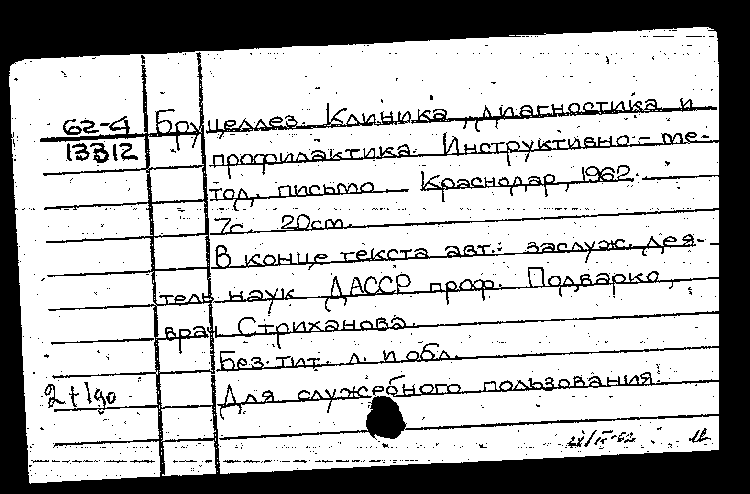 62-4 Бруцеллез. Клиника, диагностика и
13312 профилактика. Инструктивно-ме-
тод. письмо. Краснодар, 1962.
7с. 20см.
В конце текста авт.: заслуж. дея-
тель наук ДАССР проф. Подварко,
врач Стриханова.
Без тит. л. и обл.
2+1 до Для служебного пользования.